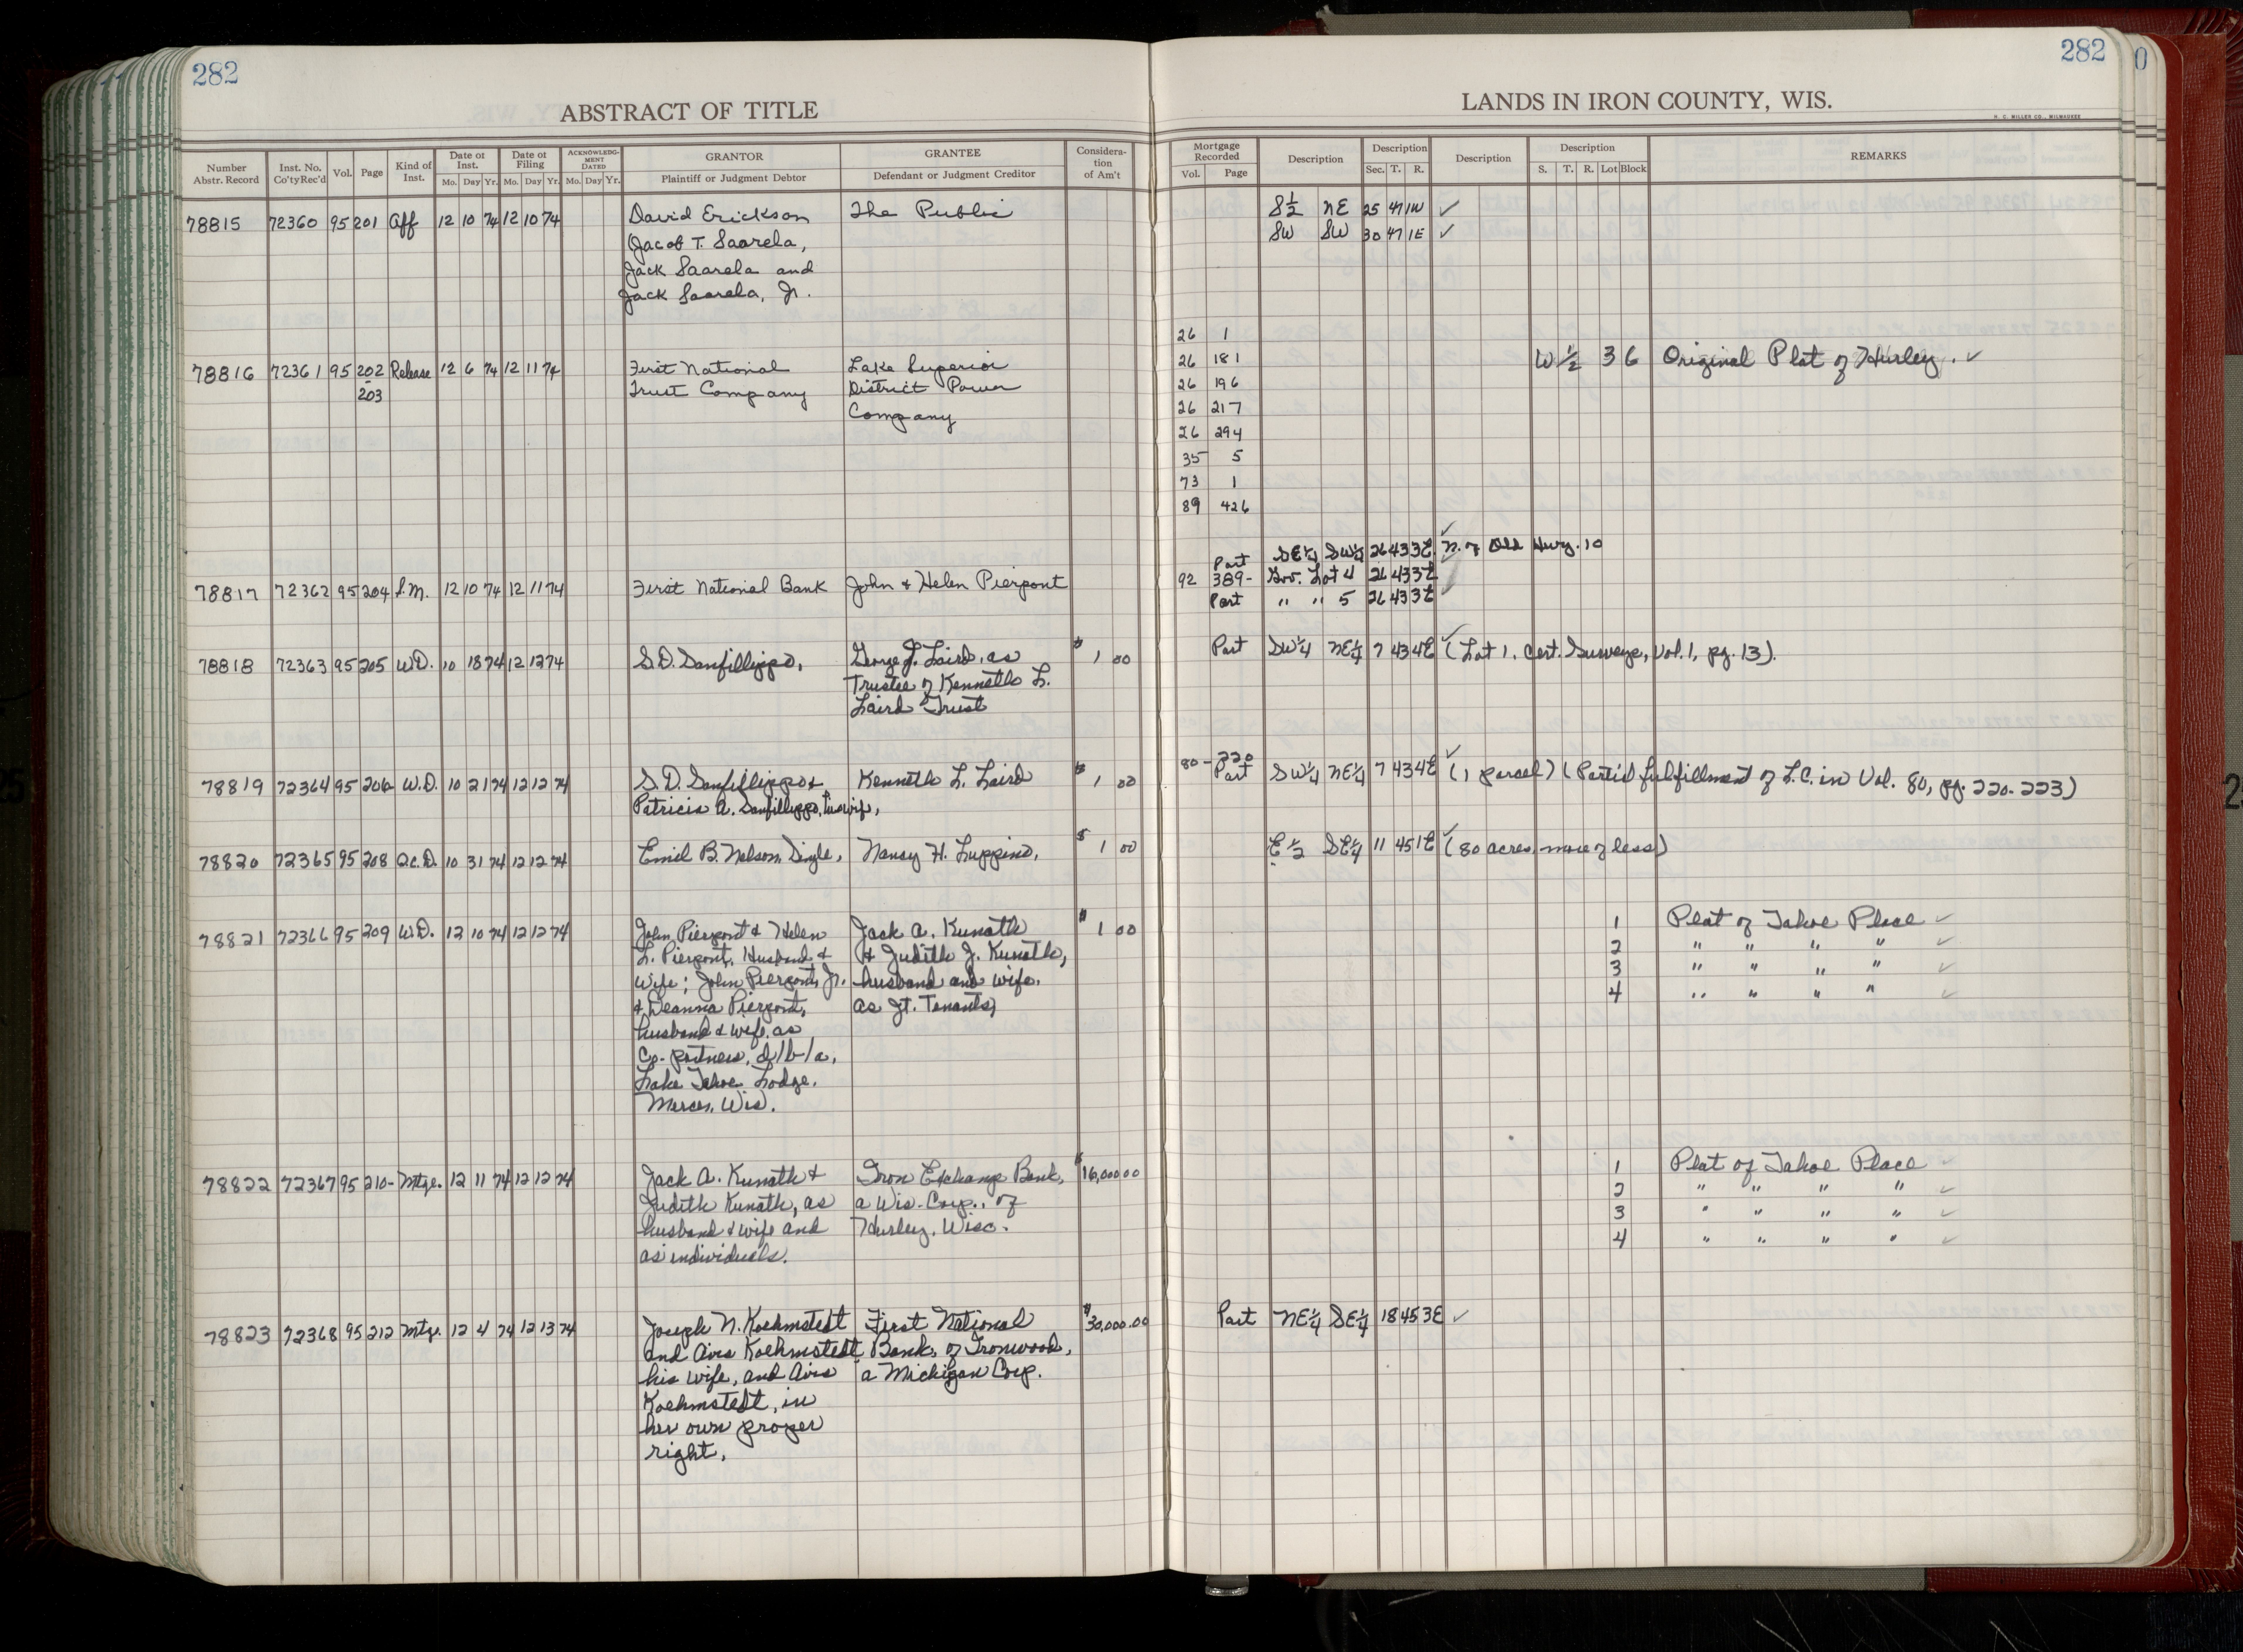 282
282
ABSTRACT OF TITLE
LANDS IN IRON COUNTY, WIS.
H. C. MILLER CO., MILWAUKEE
Number Abstr. Record | Inst. No. Co'ty Rec'd | Vol. | Page | Kind of Inst. | Date of Inst. Mo. Day Yr. | Date of Filing Mo. Day Yr. | ACKNOWLEDGMENT DATED Mo. Day Yr. | GRANTOR Plaintiff or Judgment Debtor | GRANTEE Defendant or Judgment Creditor | Consideration of Am't | Mortgage Recorded Vol. Page | Description | Description Sec. T. R. | Description | Description S. T. R. Lot Block | REMARKS
78815 72360 95 201 Aff 12 10 74 12 10 74 David Erickson The Public S½ NE 25 47 1W ✓
Jacob T. Saarela, SW SW 30 47 1E ✓
Jack Saarela and
Jack Saarela, Jr.
26 1
78816 72361 95 202 Release 12 6 74 12 11 74 First National Lake Superior 26 181 W ½ 3 6 Original Plat of Hurley. ✓
-203 Trust Company District Power 26 196
Company 26 217
26 294
35 5
73 1
89 426
Part SE¼ SW¼ 26 43 3E ✓ N. of Old Hwy. 10
78817 72362 95 204 S.M. 12 10 74 12 11 74 First National Bank John & Helen Pierpont 92 389- Gov. Lot 4 26 43 3E ✓
Part " " 5 26 43 3E ✓
78818 72363 95 205 W.D. 10 18 74 12 12 74 S.D. Sanfillippo, George J. Laird, as $1 00 Part SW¼ NE¼ 7 43 4E ✓ (Lot 1, Cert. Surveys, Vol. 1, pg. 13).
Trustee of Kenneth L.
Laird Trust
78819 72364 95 206 W.D. 10 21 74 12 12 74 S.D. Sanfillippo & Kenneth L. Laird $1 00 80-220 Part SW¼ NE¼ 7 43 4E ✓ (1 parcel) (Partial fulfillment of L.C. in Vol. 80, pg. 220-223)
Patricia A. Sanfillippo, his wife,
78820 72365 95 208 Q.C.D. 10 31 74 12 12 74 Emil B. Nelson, Single, Nancy H. Luppino, $1 00 E½ SE¼ 11 45 1E ✓ (80 acres more of less)
78821 72366 95 209 W.D. 12 10 74 12 12 74 John Pierpont & Helen Jack A. Kunath " 1 00 1 Plat of Tahoe Place ✓
L. Pierpont, Husband & & Judith J. Kunath, 2 " " " " ✓
Wife; John Pierpont, Jr. husband and wife, 3 " " " " ✓
& Deanna Pierpont, as Jt. Tenants, 4 " " " " ✓
husband & wife, as
Co-partners, d/b/a,
Lake Tahoe Lodge,
Mercer, Wis.
78822 72367 95 210- Mtge. 12 11 74 12 12 74 Jack A. Kunath & Iron Exchange Bank, $16,000 00 1 Plat of Tahoe Place ✓
Judith Kunath, as a Wis. Corp., of 2 " " " " ✓
husband & wife and Hurley, Wisc. 3 " " " " ✓
as individuals. 4 " " " " ✓
78823 72368 95 212 Mtge. 12 4 74 12 13 74 Joseph N. Koehmstedt First National $30,000.00 Part NE¼ SE¼ 18 45 3E ✓
and Avis Koehmstedt Bank, of Ironwood,
his wife, and Avis a Michigan Corp.
Koehmstedt, in
her own proper
right,